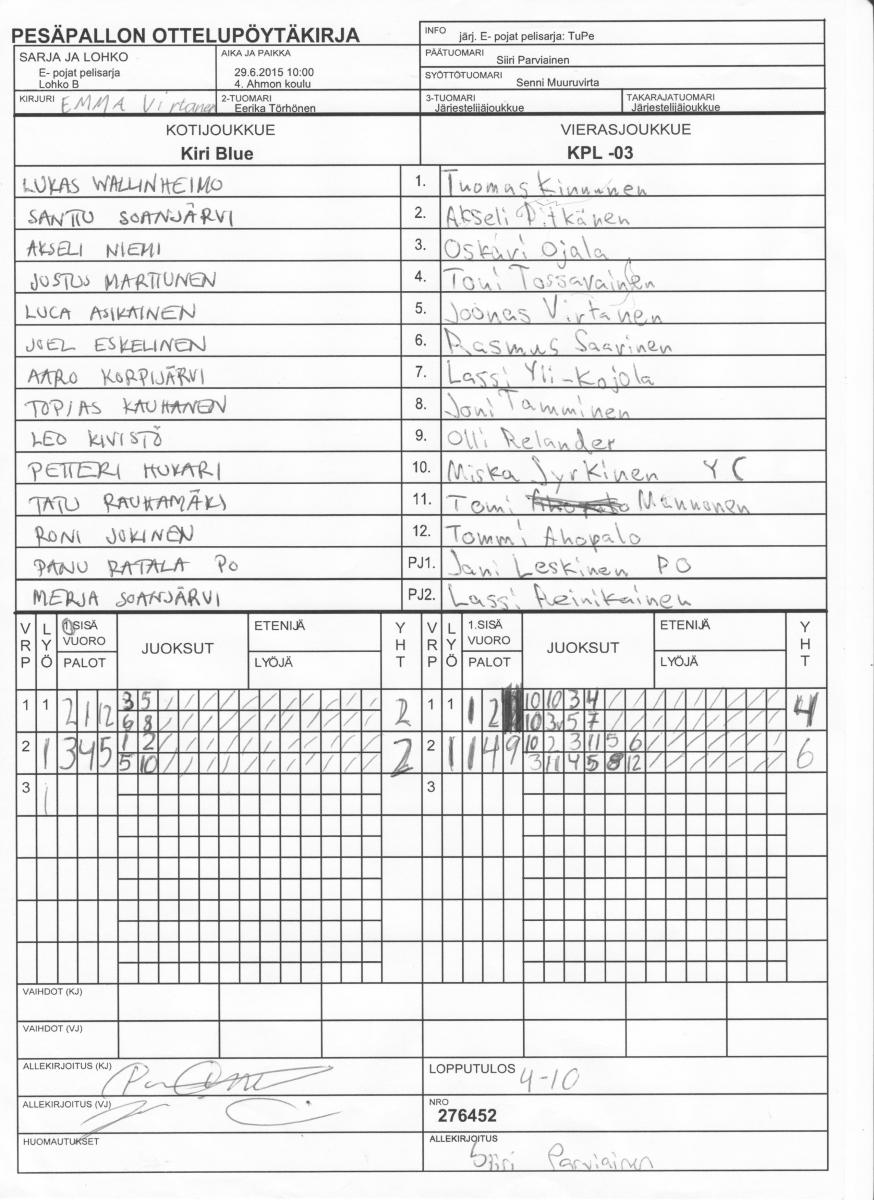 PESÄPALLON OTTELUPÖYTÄKIRJA
INFO järj. E- pojat pelisarja: TuPe
SARJA JA LOHKO
E- pojat pelisarja
Lohko B
AIKA JA PAIKKA
29.6.2015 10:00
4. Ahmon koulu
PÄÄTUOMARI
Siiri Parviainen
SYÖTTÖTUOMARI
Senni Muuruvirta
KIRJURI EMMA Virtanen
2-TUOMARI
Eerika Törhönen
3-TUOMARI
Järjestelijäjoukkue
TAKARAJATUOMARI
Järjestelijäjoukkue
KOTIJOUKKUE
Kiri Blue
VIERASJOUKKUE
KPL -03
LUKAS WALLINHEIMO 1. Tuomas Kinnunen
SANTTU SOANJÄRVI 2. Akseli Pitkänen
AKSELI NIEMI 3. Oskari Ojala
JUSTUS MARTTUNEN 4. Toni Tossavainen
LUCA ASIKAINEN 5. Joonas Virtanen
JOEL ESKELINEN 6. Rasmus Saarinen
AARO KORPIJÄRVI 7. Lassi Yli-Kojola
TOPIAS KAUHANEN 8. Joni Tamminen
LEO KIVISTÖ 9. Olli Relander
PETTERI HUKARI 10. Miska Jyrkinen YC
TATU RAUHAMÄKI 11. Tomi Mannonen
RONI JOKINEN 12. Tommi Ahopalo
PANU RATALA PO PJ1. Jani Leskinen PO
MERJA SOANJÄRVI PJ2. Lassi Reinikainen
VRP LYÖ 1.SISÄ VUORO PALOT JUOKSUT ETENIJÄ LYÖJÄ YHT VRP LYÖ 1.SISÄ VUORO PALOT JUOKSUT ETENIJÄ LYÖJÄ YHT
1 1 2 1 12 3 5 2 1 1 1 2 10 10 3 4 4
6 8 10 3 5 7
2 1 3 4 5 1 2 2 2 1 1 4 9 10 2 3 11 5 6 6
5 10 3 11 4 5 8 12
3 1 3
VAIHDOT (KJ)
VAIHDOT (VJ)
ALLEKIRJOITUS (KJ)
LOPPUTULOS 4-10
ALLEKIRJOITUS (VJ)
NRO
276452
HUOMAUTUKSET
ALLEKIRJOITUS
Siiri Parviainen